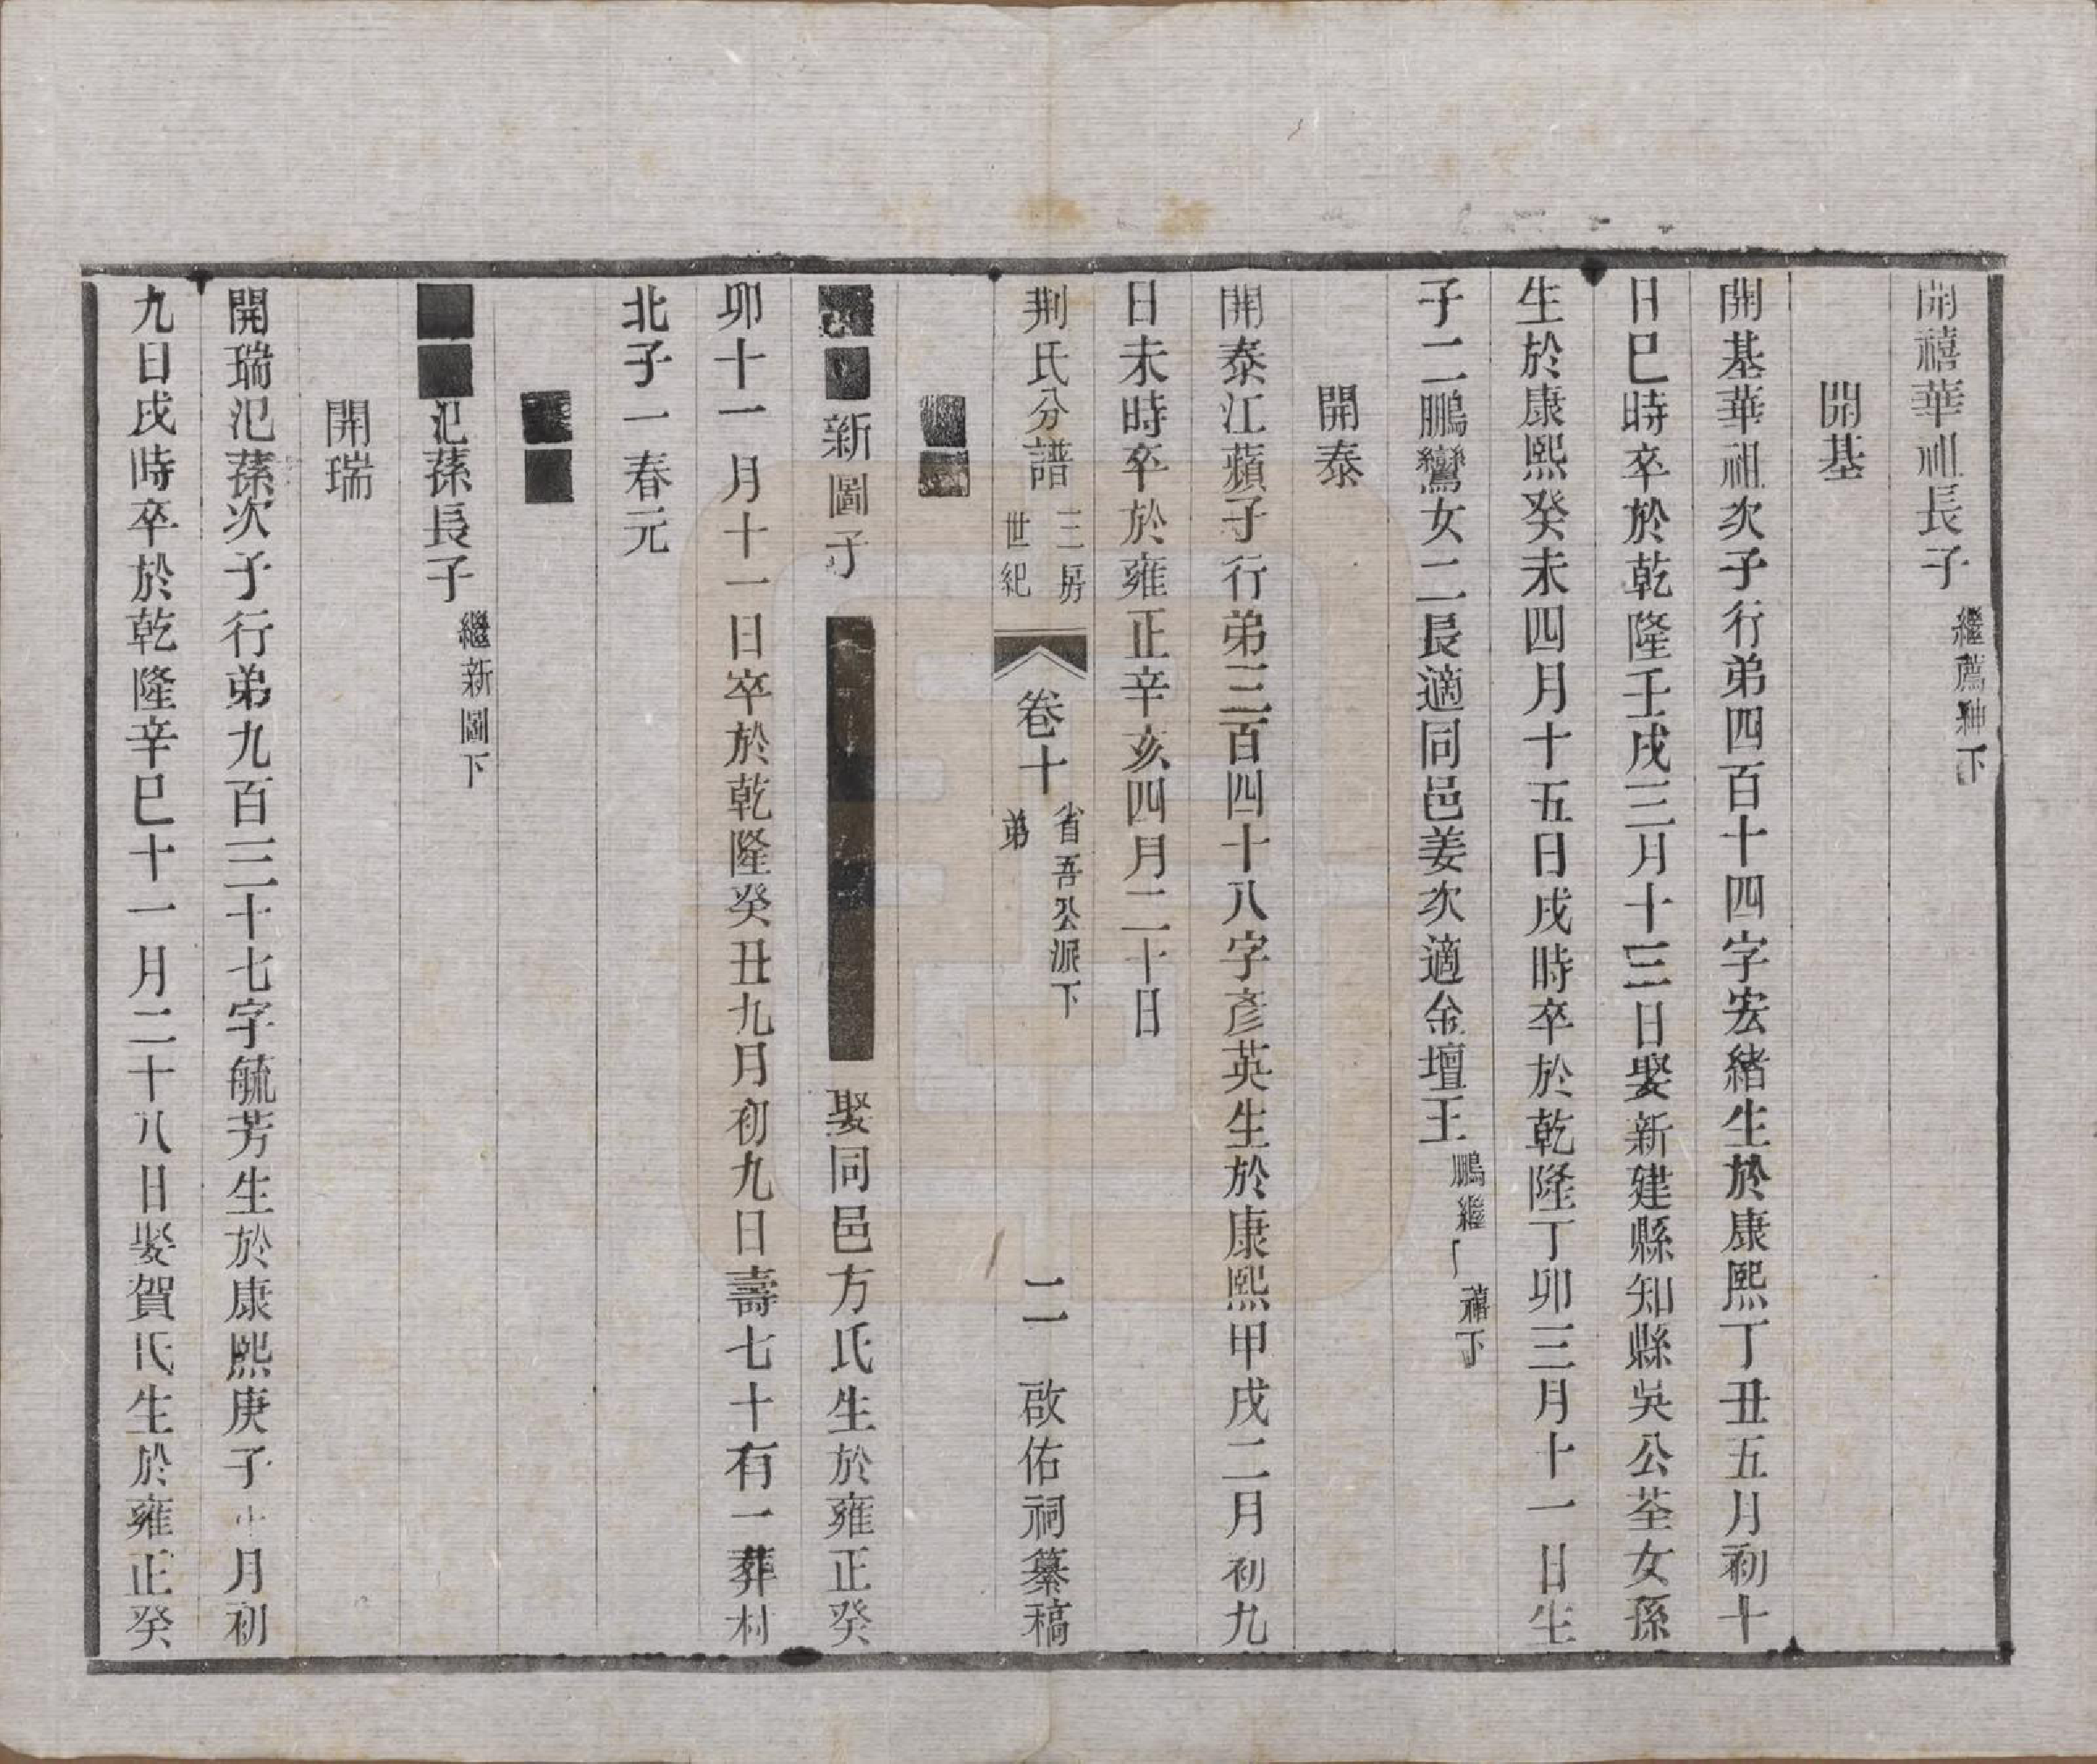 開禧華祖長子繼薦紳下
開基
開基華祖次子行弟四百十四字宏緒生於康熙丁丑五月初十
日巳時卒於乾隆壬戌三月十三日娶新建縣知縣吳公荃女孫
生於康熙癸未四月十五日戌時卒於乾隆丁卯三月十一日生
子二鵬鸞女二長適同邑姜次適金壇王鵬繼禧下
開泰
開泰江蘋子行弟三百四十八字彥英生於康熙甲戌二月初九
日未時卒於雍正辛亥四月二十日
荆氏分譜 三房世紀 卷十 省吾公派下弟 二 啟佑祠纂稿
■■
■■新圖子■■■■■■■■娶同邑方氏生於雍正癸
卯十一月十一日卒於乾隆癸丑九月初九日壽七十有一葬村
北子一春元
■■
■■汜蓀長子繼新圖下
開瑞
開瑞汜蓀次子行弟九百三十七字毓芳生於康熙庚子月初
九日戌時卒於乾隆辛巳十一月二十八日娶賀氏生於雍正癸